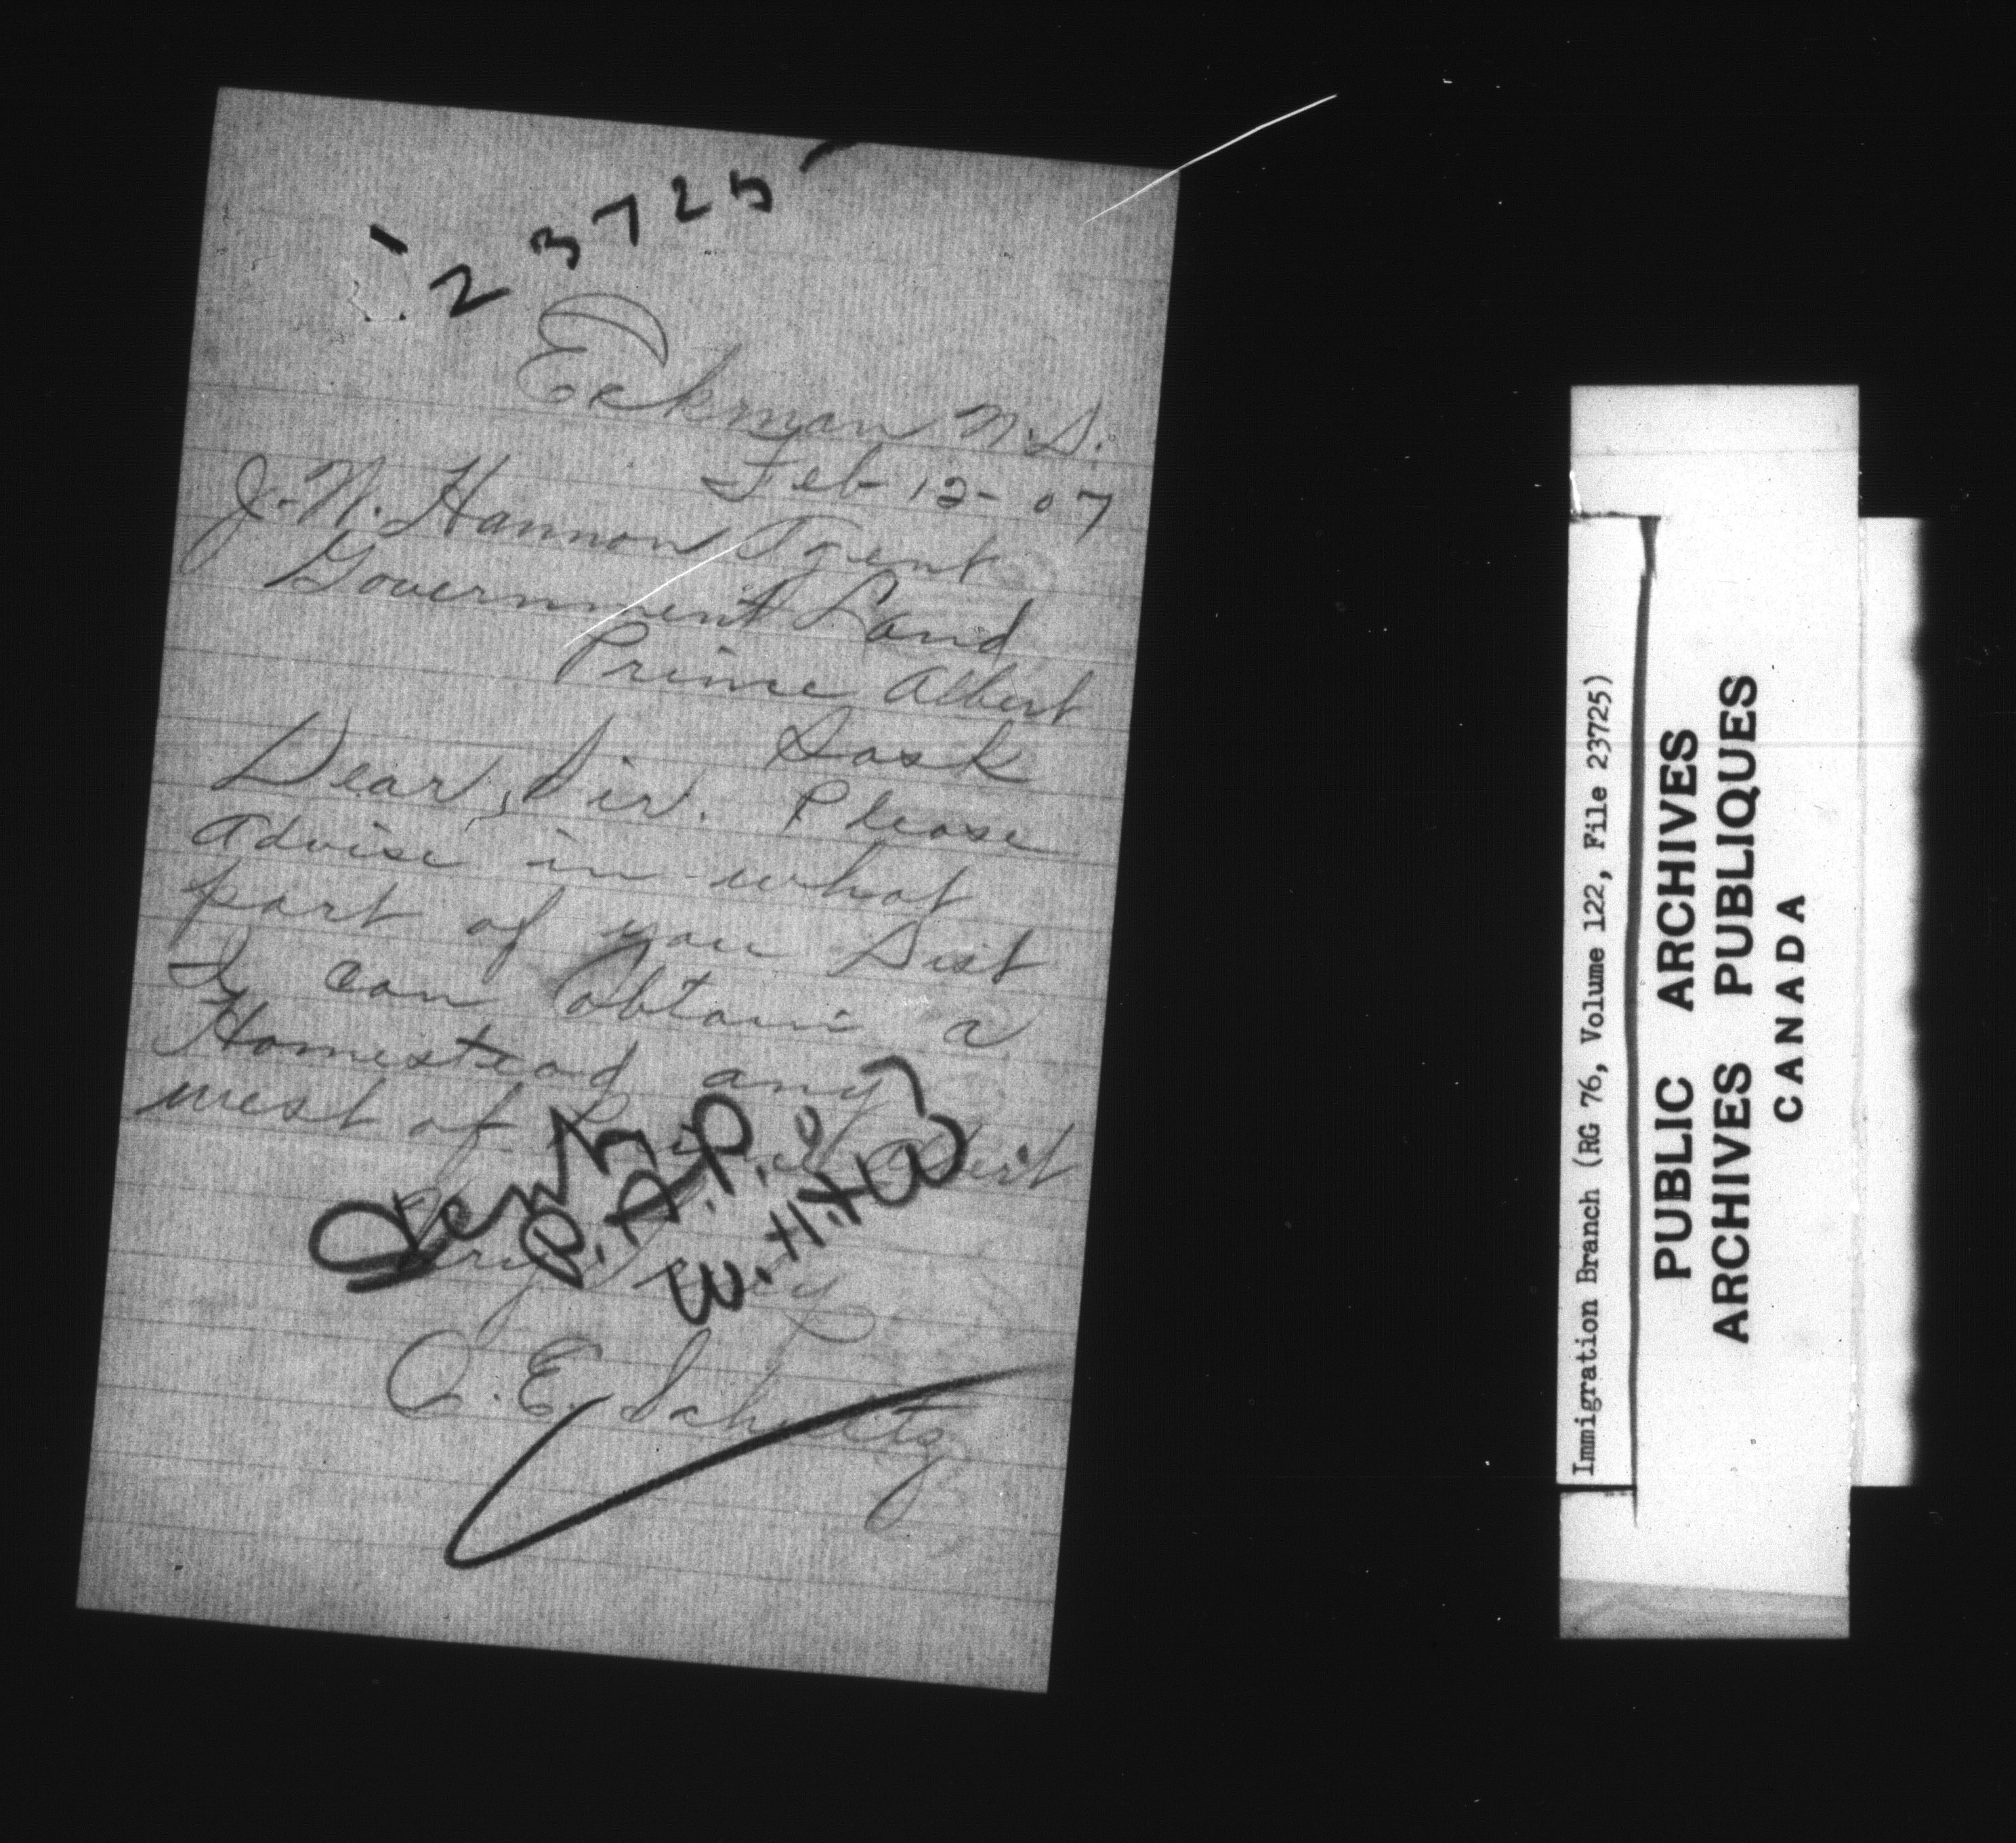 23725
Eckman N.D.
Feb 12-07
J. N. Hannon Agent
Government Land
Prince Albert
Sask
Dear Sir. Please
advise in what
part of you Dist
I can obtain a
Homestead any
west of Prince Albert
Sent
W.H.
O. E. Schultz
Immigration Branch (RG 76, Volume 122, File 23725)
PUBLIC ARCHIVES
ARCHIVES PUBLIQUES
CANADA